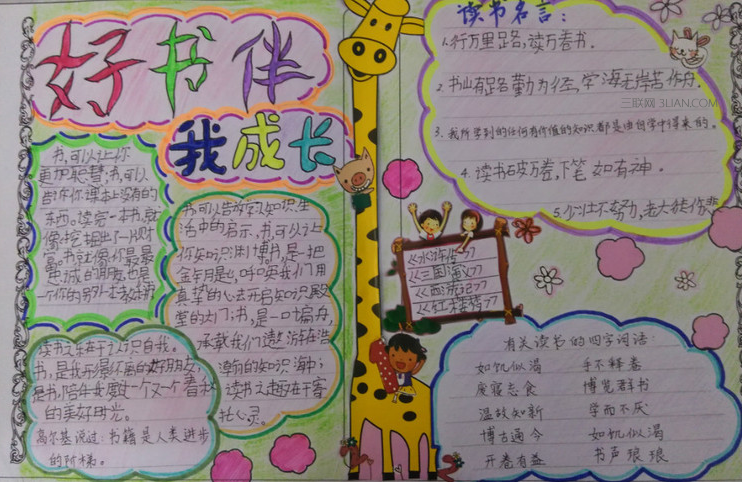 好书伴
我成长
书,可以让你
更加聪慧;书,可以
告诉你课本上没有的
东西。读完一本书,就
像挖掘出了一片财
富。书就像你最最
忠诚的朋友,也是
一个你的另外
书可以告诉
活中的启示,书可以让
你知识渊博;书,是一把
金钥是,呼唤我们用
真挚的心去开启知识殿
堂的大门;书,是一叶扁舟,
承载我们遨游在浩
瀚的知识海中;
读书之趣在于寄
托心灵。
读书之乐在于认识自我。
书,是我形影不离的好朋友;
是书,陪伴我度过一个又一个春秋
的美好时光。
高尔基说过:书籍是人类进步
的阶梯。
读书名言:
1.行万里路,读万卷书。
2.书山有路勤为径,学海无岸苦作舟。
三联网 3LIAN.COM
3.我所学到的任何有价值的知识都是由自学中得来的。
4.读书破万卷,下笔如有神。
5.少壮不努力,老大徒伤悲
《水浒传》
《三国演义》
《西游记》
《红楼梦》
有关读书的四字词语:
如饥似渴 手不释卷
废寝忘食 博览群书
温故知新 学而不厌
博古通今 如饥似渴
开卷有益 书声琅琅